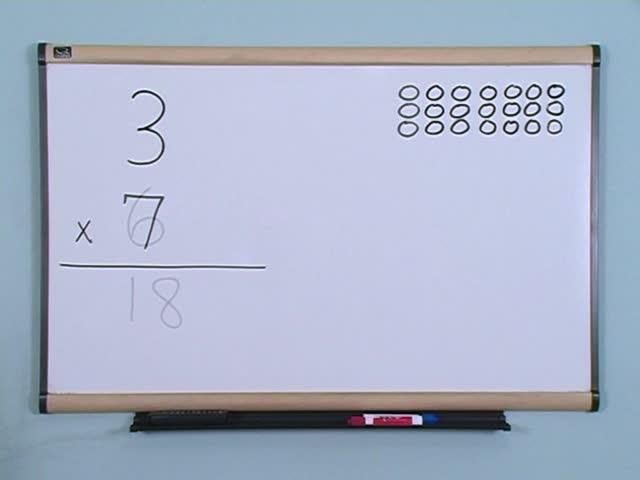 3
x 7
18